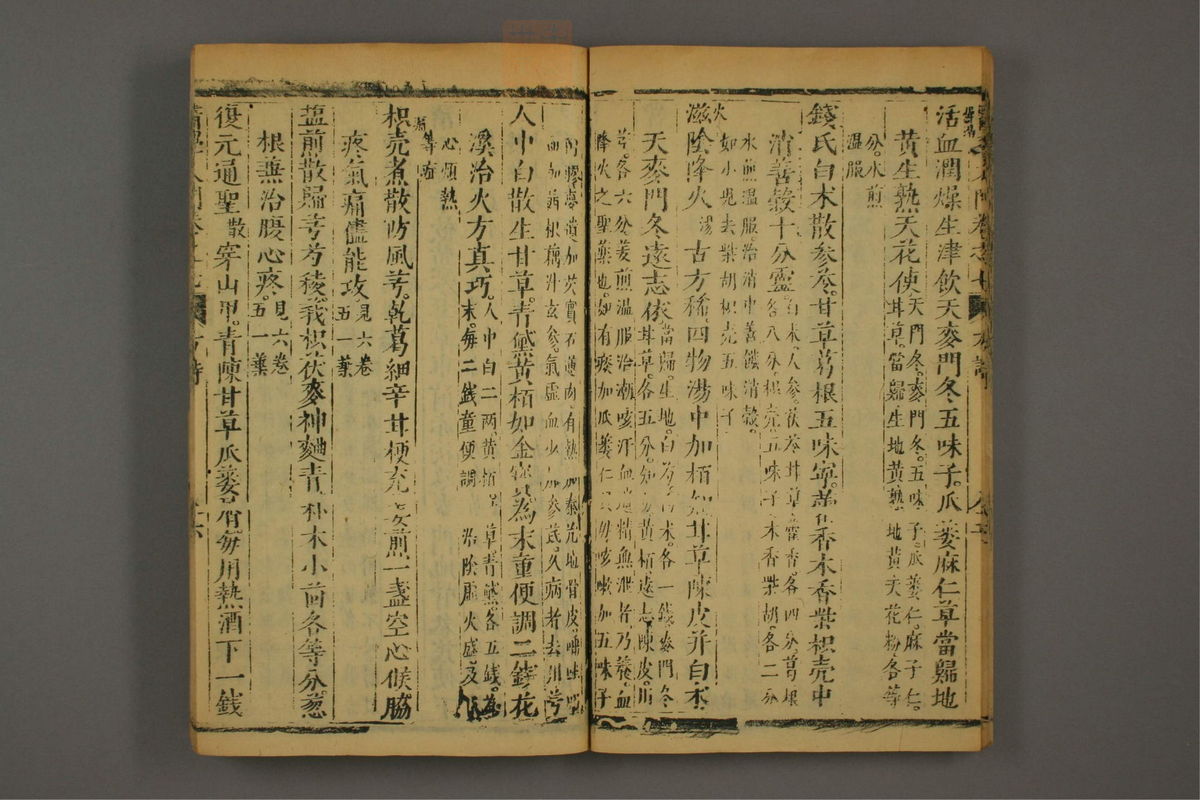 活血潤燥生津飲天麥門冬五味子瓜蔞麻仁草當歸地
黃生熟天花使天門冬。麥門冬。五味子。瓜蔞仁。麻子仁。
甘草。當歸生地黃熟地黃天花粉各等
分。水煎
溫服
錢氏白朮散參苓。甘草葛根五味寧。藿香木香柴枳壳中
消善穀十分靈白朮人參。茯苓甘草藿香。各四分葛根
各八分。枳壳五味子木香柴胡。各二分
水煎溫服。治消中善飢消穀。
如小兒去柴胡枳壳五味子
滋陰降火湯古方稀四物湯中加栢知甘草陳皮并白朮
天麥門冬遠志依當歸。生地。白芍白朮。各一錢麥門冬
甘草。各五分。知母黃栢。遠志陳皮。川
芎。各六分姜煎溫服治潮咳汗血遺精無泄者乃養。血
降火之聖藥也。如有痰加瓜蔞仁貝母咳嗽加五味子
阿膠夢遺加芡實石蓮肉。有熱加秦艽地骨皮。
如茜根藕汁玄參。氣虛血少加參芪。久病者去川芎
人中白散生甘草。青黛黃栢如金寳為末童便調二錢花
溪治火方真巧。人中白二兩。黃栢草青黛各五錢。為
末。每二錢童便調治陰虛火盛及
心煩熱
等症
枳壳煮散防風芎。乾葛細辛甘梗充姜煎一盞空心候脇
疼氣痛儘能攻見六卷
五一葉
塩煎散歸芎芍稜。莪枳茯麥神麯青朴木小茴各等分。葱
根無治腹心疼。見六卷
五一葉
復元通聖散穿山甲。青陳甘草瓜蔞屑每用熱酒下一錢